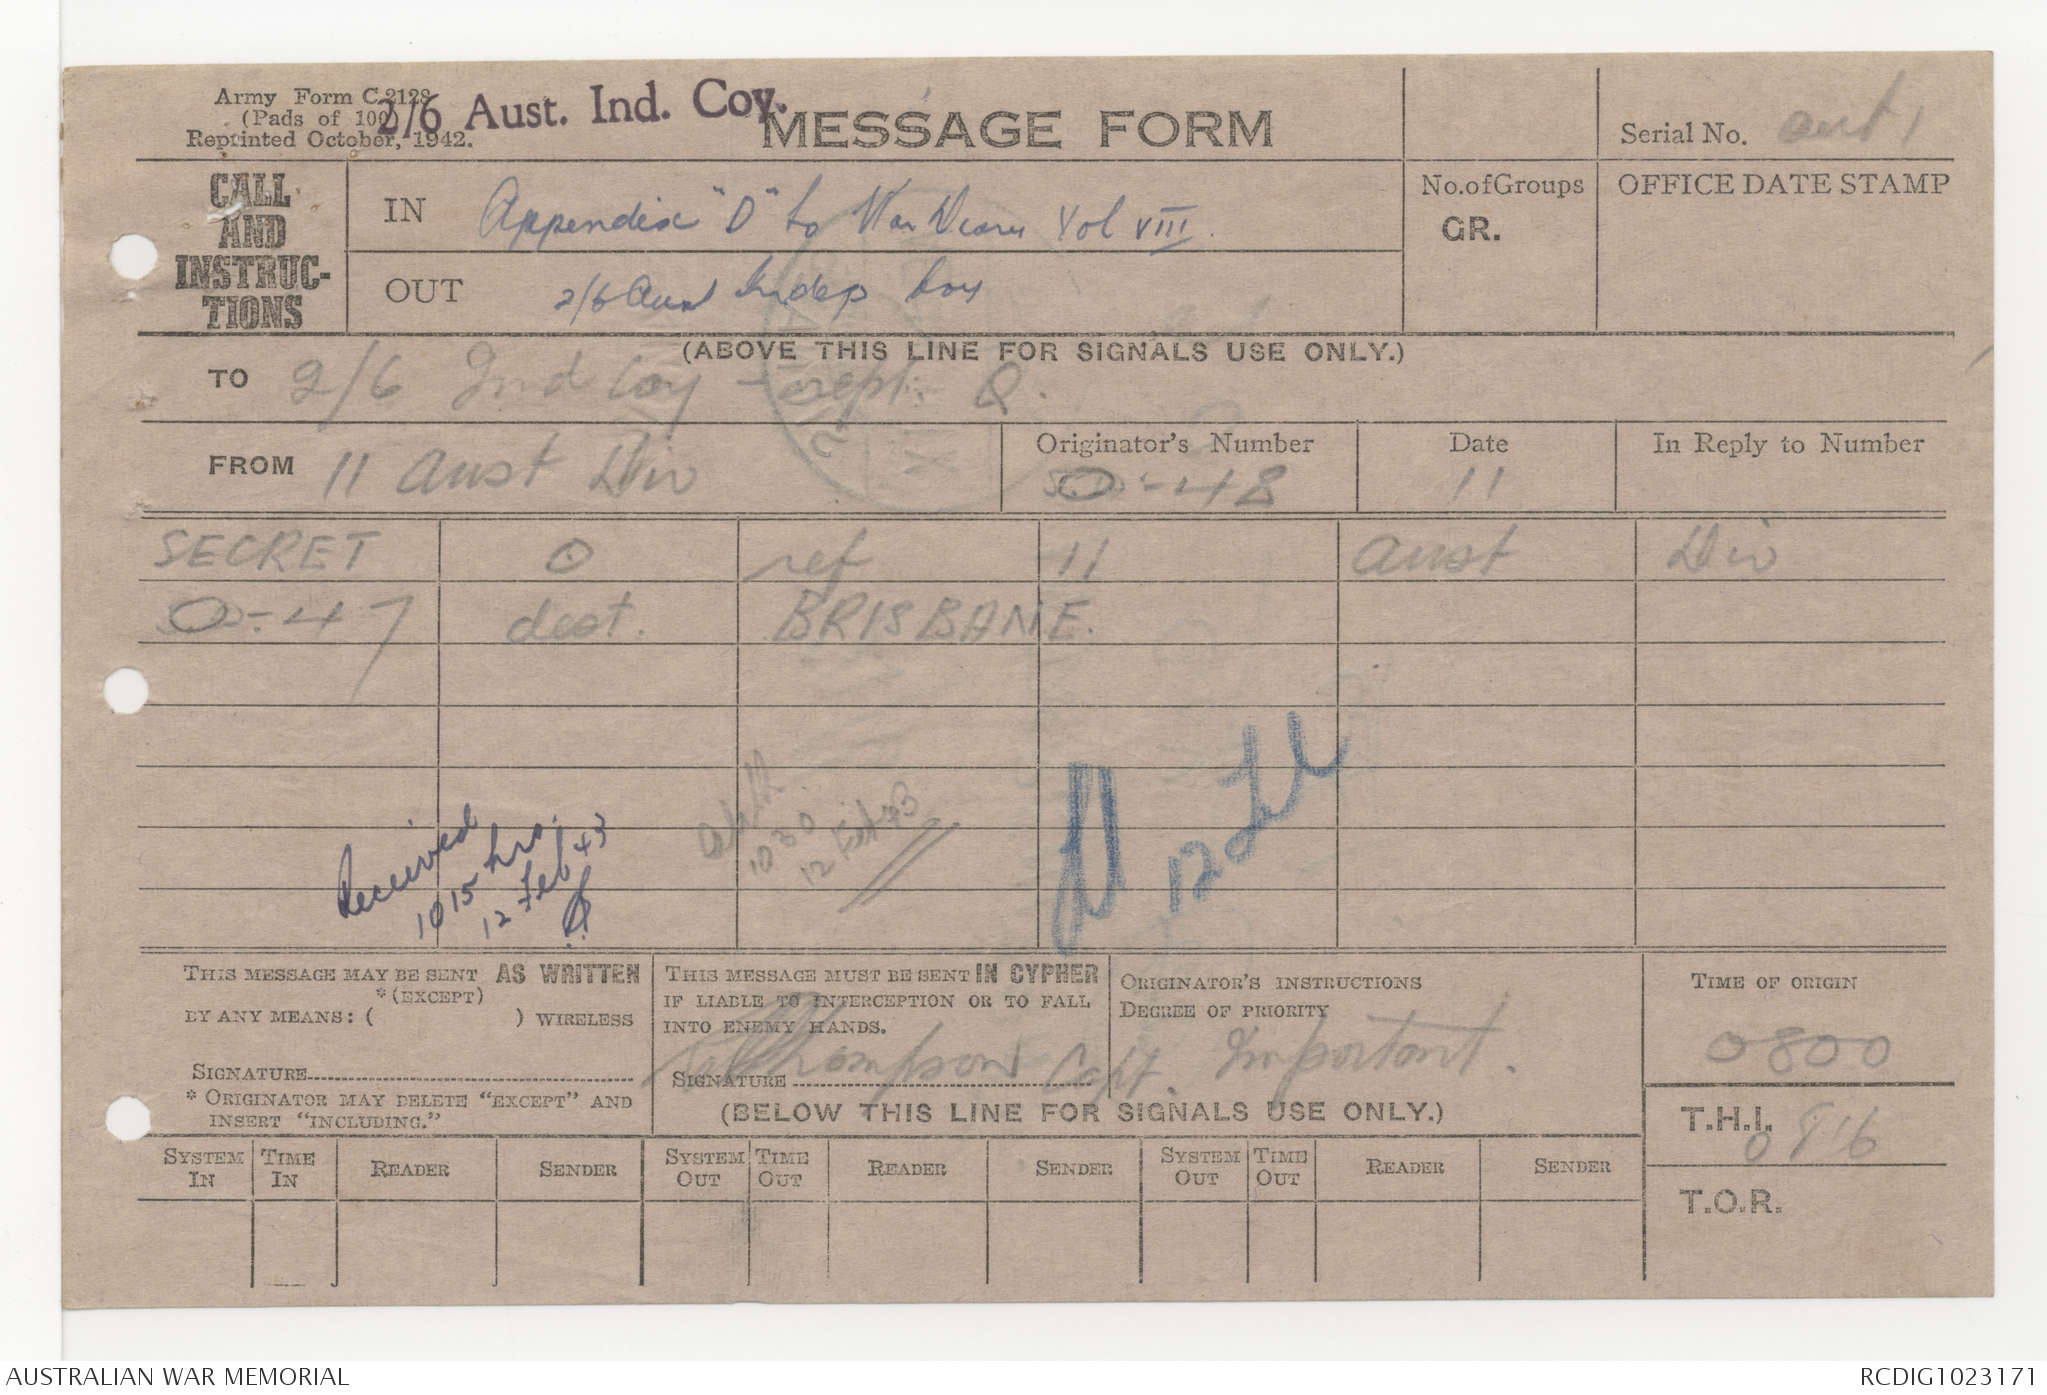 Army Form C.2128
(Pads of 100)
Reprinted October, 1942.
2/6 Aust. Ind. Coy.
MESSAGE FORM
Serial No.
CALL AND INSTRUC-TIONS
IN Appendix "D" to War Diary Vol VIII.
OUT 2/6 Aust Indep Coy
No.of Groups
GR.
OFFICE DATE STAMP
(ABOVE THIS LINE FOR SIGNALS USE ONLY.)
TO 2/6 Ind Coy - rept. Q.
FROM 11 Aust Div
Originator's Number O-48
Date 11
In Reply to Number
SECRET O ref 11 Aust Div
O-47 dest. BRISBANE.
Received
1015 hrs.
12 Feb 43
1030
12 Feb 43
12 Feb
THIS MESSAGE MAY BE SENT AS WRITTEN
*(EXCEPT)
BY ANY MEANS: ( ) WIRELESS
SIGNATURE
* ORIGINATOR MAY DELETE "EXCEPT" AND
INSERT "INCLUDING."
THIS MESSAGE MUST BE SENT IN CYPHER
IF LIABLE TO INTERCEPTION OR TO FALL
INTO ENEMY HANDS.
SIGNATURE Thompson Capt.
ORIGINATOR'S INSTRUCTIONS
DEGREE OF PRIORITY
Important.
TIME OF ORIGIN
0800
(BELOW THIS LINE FOR SIGNALS USE ONLY.)
T.H.I. 0816
T.O.R.
SYSTEM IN TIME IN READER SENDER SYSTEM OUT TIME OUT READER SENDER SYSTEM OUT TIME OUT READER SENDER
AUSTRALIAN WAR MEMORIAL
RCDIG1023171